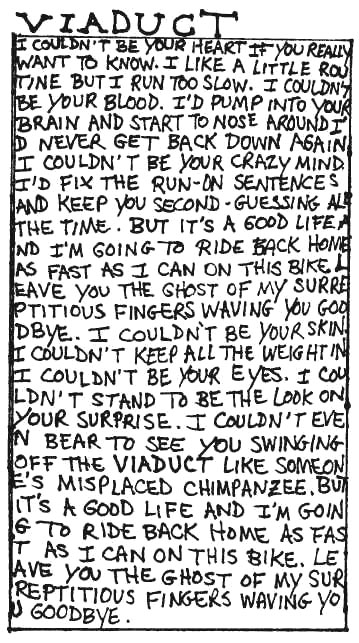 VIADUCT
I COULDN'T BE YOUR HEART IF YOU REALLY
WANT TO KNOW. I LIKE A LITTLE ROU
TINE BUT I RUN TOO SLOW. I COULDN'T
BE YOUR BLOOD. I'D PUMP INTO YOUR
BRAIN AND START TO NOSE AROUND I'
D NEVER GET BACK DOWN AGAIN
I COULDN'T BE YOUR CRAZY MIND
I'D FIX THE RUN-ON SENTENCES
AND KEEP YOU SECOND-GUESSING ALL
THE TIME. BUT IT'S A GOOD LIFE A
ND I'M GOING TO RIDE BACK HOME
AS FAST AS I CAN ON THIS BIKE. L
EAVE YOU THE GHOST OF MY SURRE
PTITIOUS FINGERS WAVING YOU GOO
DBYE. I COULDN'T BE YOUR SKIN.
I COULDN'T KEEP ALL THE WEIGHT IN
I COULDN'T BE YOUR EYES. I COU
LDN'T STAND TO BE THE LOOK ON
YOUR SURPRISE. I COULDN'T EVE
N BEAR TO SEE YOU SWINGING
OFF THE VIADUCT LIKE SOMEON
E'S MISPLACED CHIMPANZEE. BUT
IT'S A GOOD LIFE AND I'M GOIN
G TO RIDE BACK HOME AS FAS
T AS I CAN ON THIS BIKE. LE
AVE YOU THE GHOST OF MY SUR
REPTITIOUS FINGERS WAVING YO
U GOODBYE.